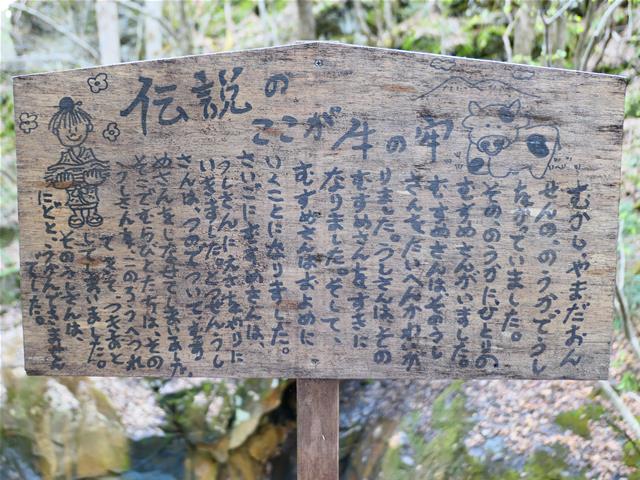 伝説の
ここが牛の牢
むかし、やまだおん
せんの、のうかでうし
をかっていました。
そののうかにひとりの
むすめさんがいました。
むすめさんはそのうし
さんをたいへんかわいが
りました。うしさんはその
むすめさんをすきに
なりました。そして、
むすめさんはおよめに
いくことになりました。
さいごにむすめさんは、
うしさんにえさをやりに
いきました。とつぜんうし
さんは、つのでついて、むす
めさんをしなせてしまいました。
そこでむらびとたちは、その
うしさんを、このろうへつれ
てきて、つきおと
してしまいました。
そのうしさんは、
にどと、うかんできません
でした。